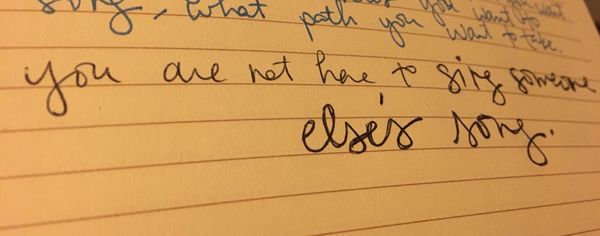 you want
you want to
song, what path you want to take.
you are not here to sing someone
else's song.